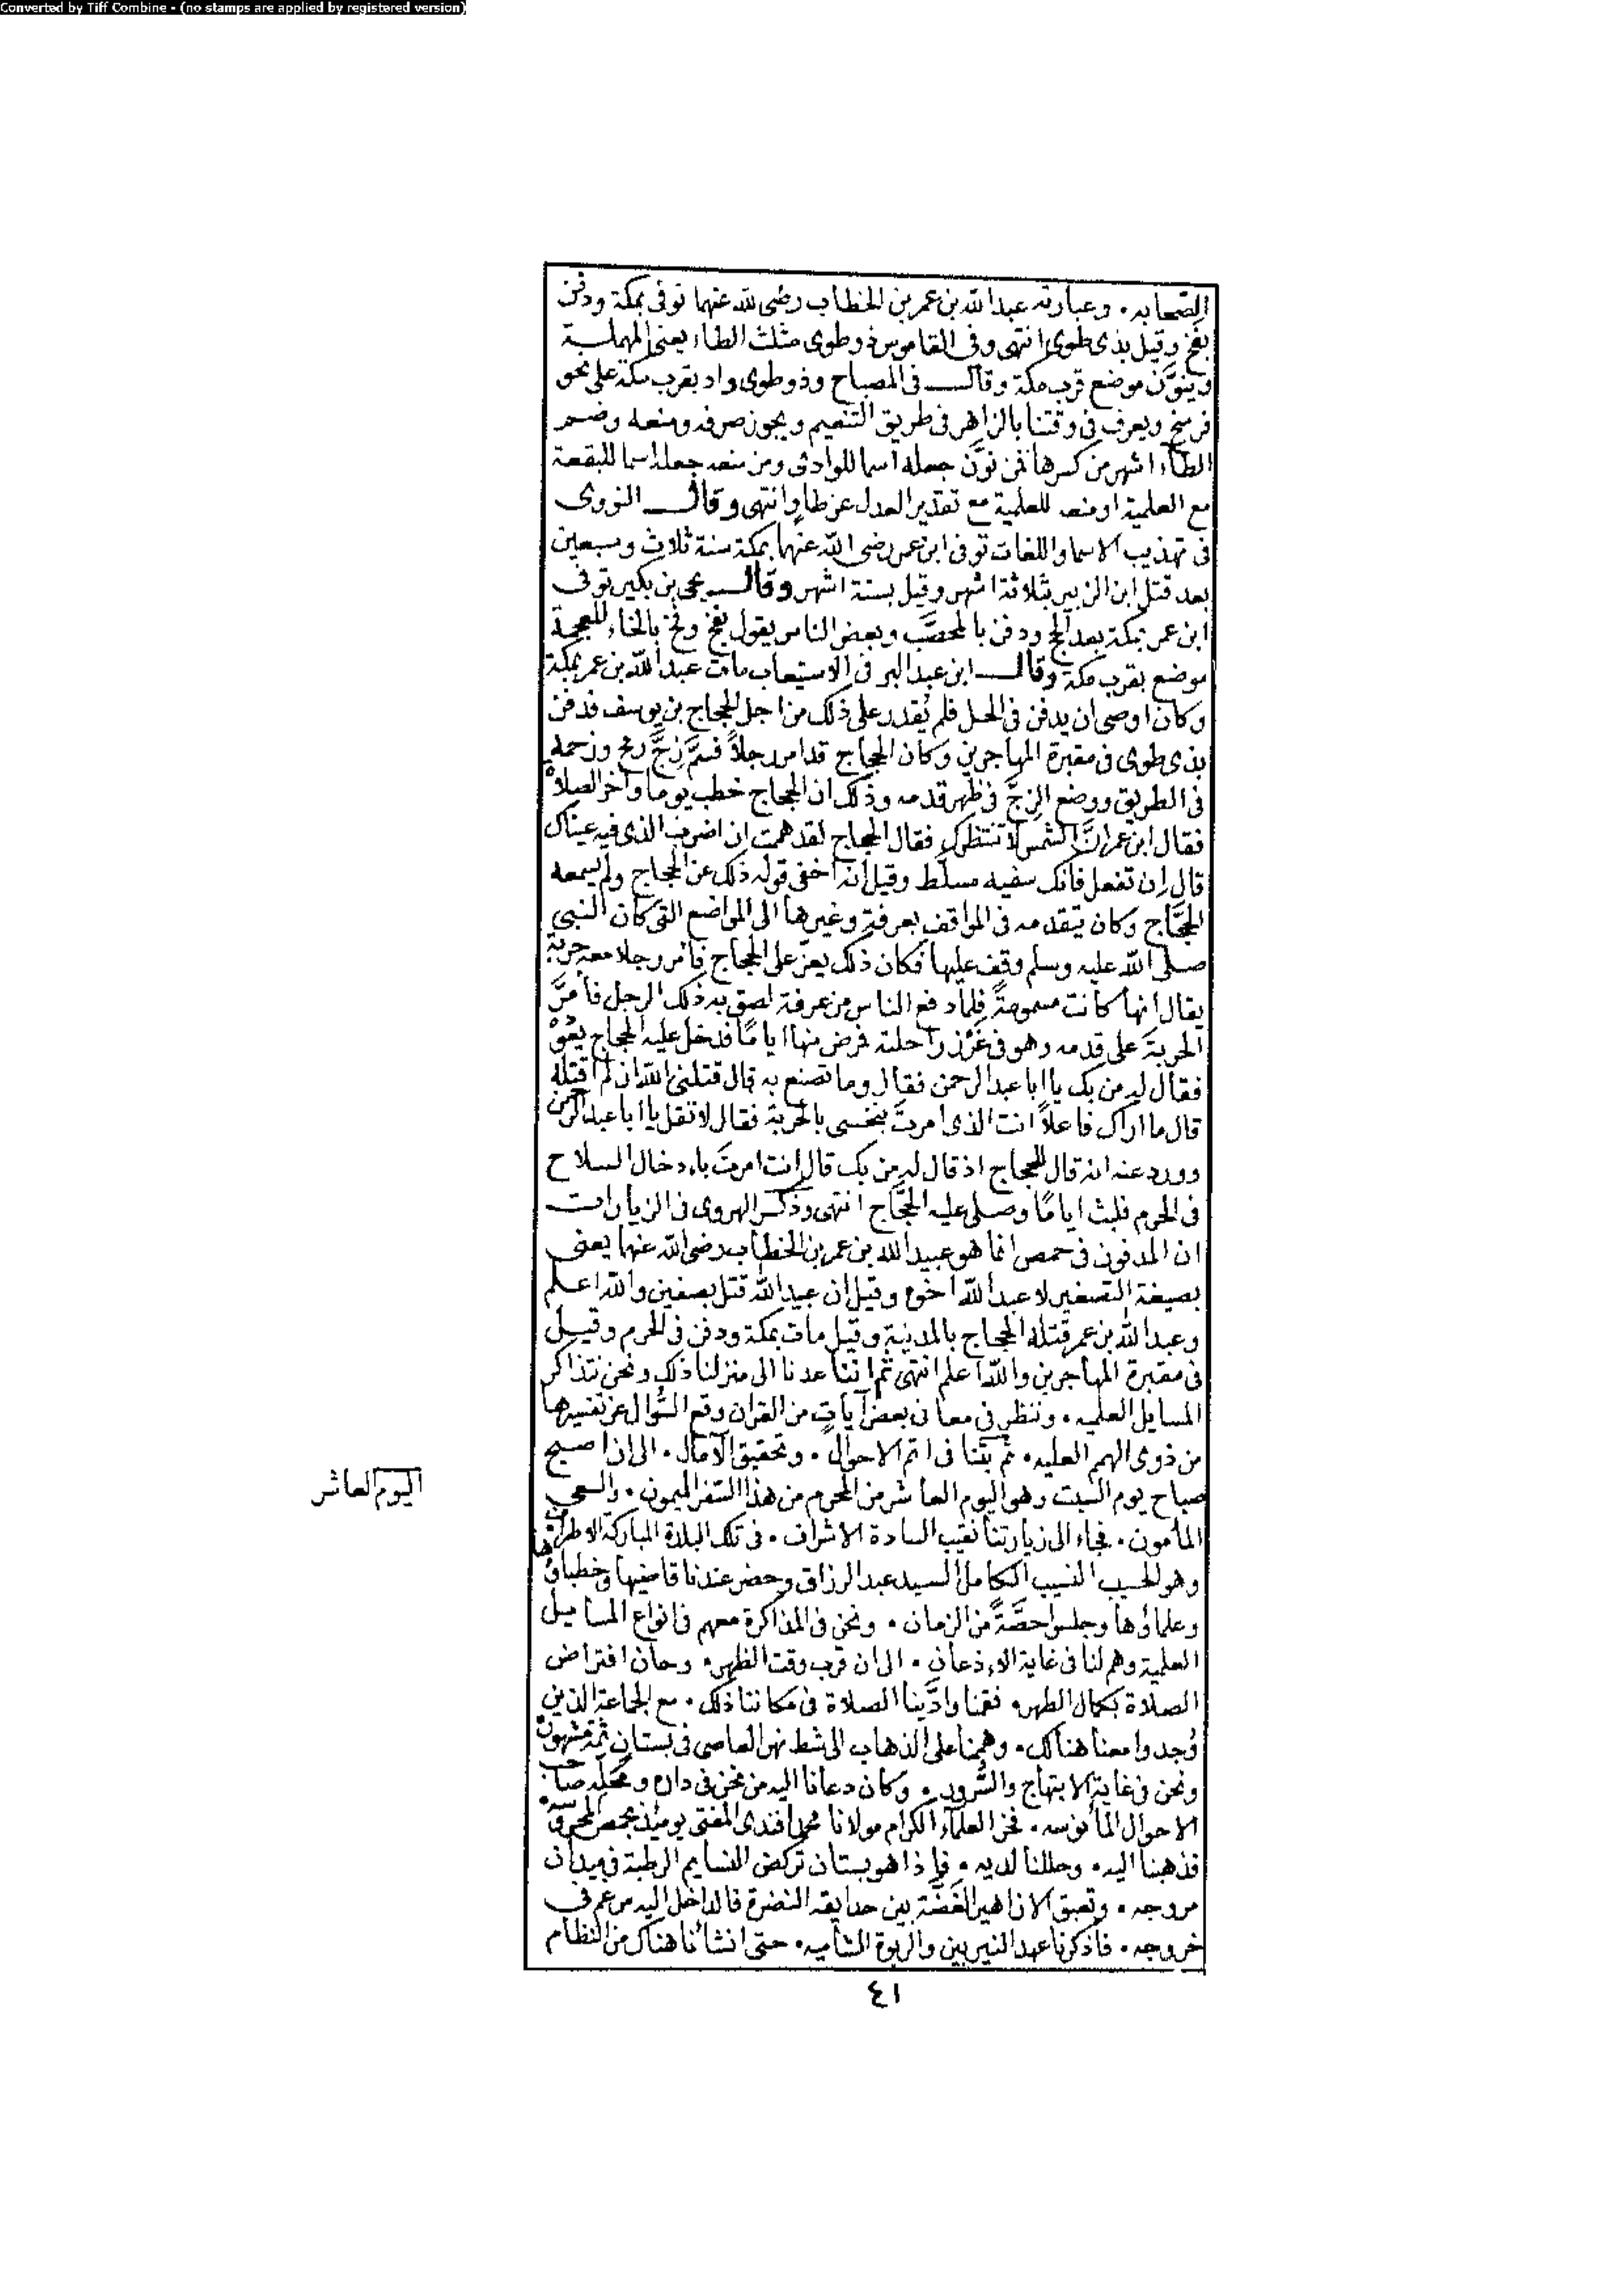 Converted by Tiff Combine - (no stamps are applied by registered version)
الصحابه. وعبارته عبد الله بن عمر بن الخطاب رضى الله عنهما توفى بمكة ودفن
بفخ وقيل بذى طوى انتهى وفى القاموس ذو طوى مثلث الطاء يعنى المهملة
وينوّن موضع قرب مكة وقال فى المصباح وذو طوى واد بقرب مكة على نحو
فرسخ ويعرف فى وقتنا بالزاهر فى طريق التنعيم ويجوز صرفه ومنعه وضم
الطاء اشهر من كسرها فمن نوّن جعله اسما للوادى ومن منعه جعله اسما للبقعة
مع العلمية او منعه للعلمية مع تقدير العدل عن طاوٍ انتهى وقال النووى
فى تهذيب الاسما واللغات توفى ابن عمر رضى الله عنهما بمكة سنة ثلاث وسبعين
بعد قتل ابن الزبير بثلاثة اشهر وقيل بستة اشهر وقال يحيى بن بكير توفى
ابن عمر بمكة بعد الحج ودفن بالمحصّب وبعض الناس يقول بفخ وفخ بالخاء المعجمة
موضع بقرب مكة وقال ابن عبد البر فى الاستيعاب مات عبد الله بن عمر بمكة
وكان اوصى ان يدفن فى الحل فلم يُقدر على ذلك من اجل الحجاج بن يوسف فدفن
بذى طوى فى مقبرة المهاجرين وكان الحجاج قد امر رجلاً فسمَّ زجَّ رمح وزحمه
فى الطريق ووضع الزجَّ فى ظهر قدمه وذلك ان الحجاج خطب يوما واخر الصلاة
فقال ابن عمر انَّ الشمس لا تنتظرك فقال الحجاج لقد هممت ان اضرب الذى فيه عيناك
قال ان تفعل فانك سفيه مسلّط وقيل انه اخفى قوله ذلك عن الحجاج ولم يسمعه
الحجَّاج وكان يتقدمه فى المواقف بعرفة وغيرها الى المواضع التى كان النبى
صلى الله عليه وسلم وقف عليها فكان ذلك يعزّ على الحجاج فامر رجلا معه حربة
يقال انها كانت مسمومةً فلما دفع الناس من عرفة لصق به ذلك الرجل فأمرَّ
الحربةَ على قدمه وهو فى غَرْز راحلته فمرض منها اياماً فدخل عليه الحجاج يعوده
فقال له من بك يا ابا عبد الرحمن فقال وما تصنع به قال قتلنى الله ان لم اقتله
قال ما اراك فاعلاً انت الذى امرتَ بنخسى بالحربة فقال لا تقل يا ابا عبد الرحمن
وورد عنه انه قال للحجاج اذ قال له من بك قال انت امرتَ بادخال السلاح
فى الحرم فلبث اياماً وصلى عليه الحجَّاج انتهى وذكر الهروى فى الزيارات
ان المدفون فى حمص انما هو عبيد الله بن عمر بن الخطاب رضى الله عنهما يعنى
بصيغة التصغير لا عبد الله اخوه وقيل ان عبيد الله قتل بصفين والله اعلم
وعبد الله بن عمر قتله الحجاج بالمدينة وقيل مات بمكة ودفن فى الحرم وقيل
فى مقبرة المهاجرين والله اعلم انتهى ثم اننا عدنا الى منزلنا ذلك ونحن نتذاكر
المسايل العلميه. وننظر فى معانى بعض آيات من القران وقع السُّوال عن تفسيرها
من ذوى الهمم العليه. ثم بتنا فى اتم الاحوال. وتحقيق الآمال. الى ان اصبح
صباح يوم السبت وهو اليوم العاشر من المحرم من هذا السفر الميمون. والسعى
اليوم العاشر
المأمون. فجاء الى زيارتنا نقيب السادة الاشراف. فى تلك البلدة المباركة الاطراف
وهو الحسيب النسيب الكامل السيد عبد الرزاق وحضر عندنا قاضيها وخطباؤها
وعلماؤها وجلسوا حصَّةً من الزمان. ونحن فى المذاكرة معهم فى انواع المسايل
العلمية وهم لنا فى غاية الاذعان. الى ان قرب وقت الظهر. وحان افتراض
الصلاة بكمال الطهر. فقمنا وادَّينا الصلاة فى مكاننا ذلك. مع الجماعة الذين
وُجدوا معنا هنالك. وهممنا على الذهاب الى شط نهر العاصى فى بستان ثمة مشهور
ونحن فى غاية الابتهاج والسُّرور. وكان دعانا اليه من نحن فى داره ومحلّه صاحب
الاحوال المأنوسه. فخر العلمآء الكرام مولانا محمد افندى المفتى يومئذ بحمص المحروسه.
فذهبنا اليه. وحللنا لديه. فاذا هو بستان تركض النسايم الرطبة فى ميدان
مروجه. وتعبق الازاهير الغضّة بين حدايقه النضرة فالداخل اليه مرغم فى
خروجه. فأذكرنا عهد النيربين والربوة الشاميه. حتى انشأنا هناك من النظام
٤١